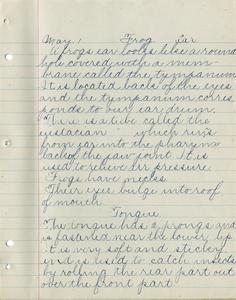 May 1 Frog Ear
A frogs ear looks like a round
hole covered with a mem-
brane called the tympanum
It is located back of the eyes
and the tympanum corres
ponds to our ear drum.
There is a tube called the
which runs
from ear into the pharynx
back of the jaw joint. It is
used to relieve air pressure
Frogs have necks
Their eyes bulge into roof
of mouth.
Tongue
The tongue has 2 prongs and
is fastened near the lower lip
it is very soft and sticky
and is used to catch insects
by rolling the rear part out
over the front part